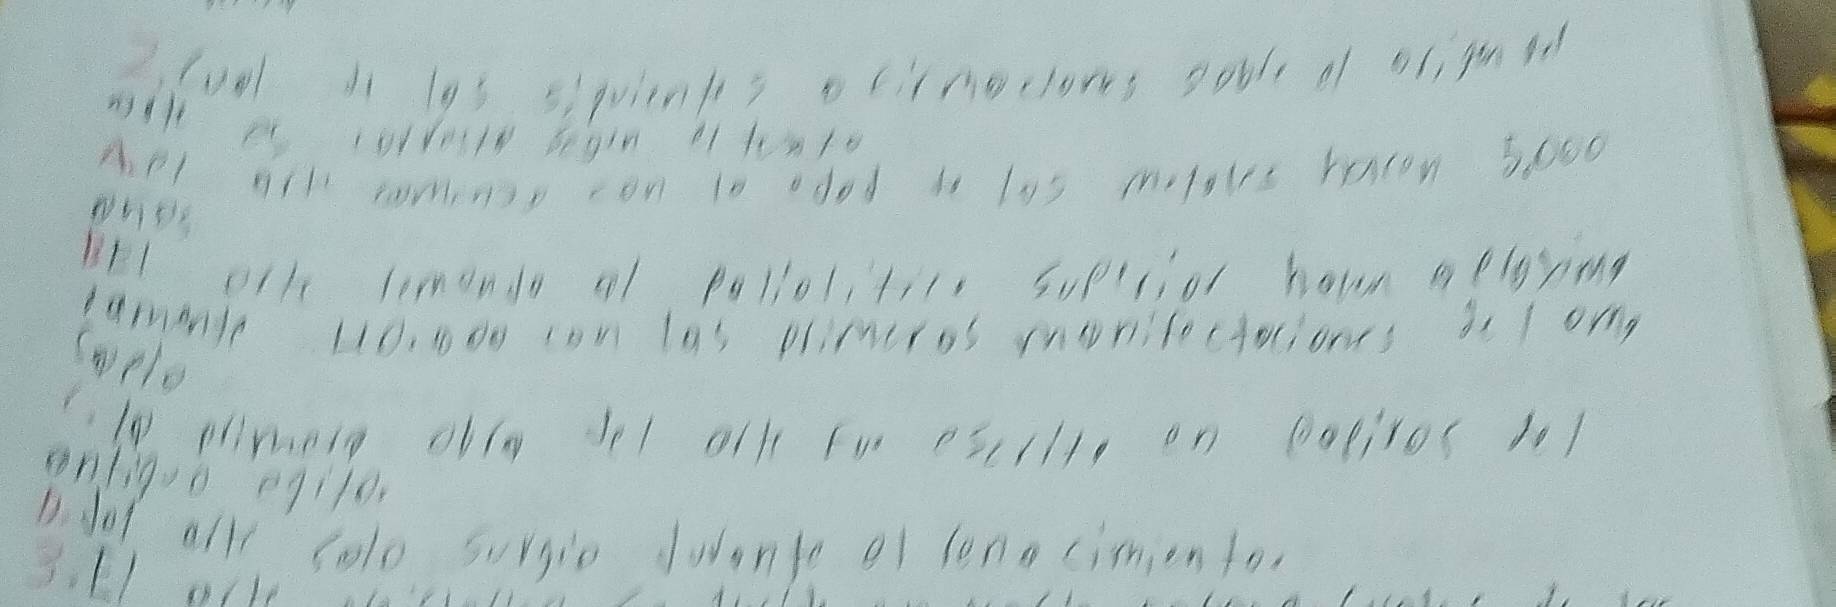 2. Cual de las siguientes afirmaciones sobre el origen del
arte es correcta segun el texto
A. el arte comenzo con la edad de los metales hacen 5,000
años
B El arte comenzo al paliolitico superior hacen aploxima
tamente 40.000 con las primeras manifectaciones del omo
sapelo
C. la primera obra del arte fue escrita en papiros del
antiguo egito.
D. del arte solo surgio durante el renacimiento.
3. El arte